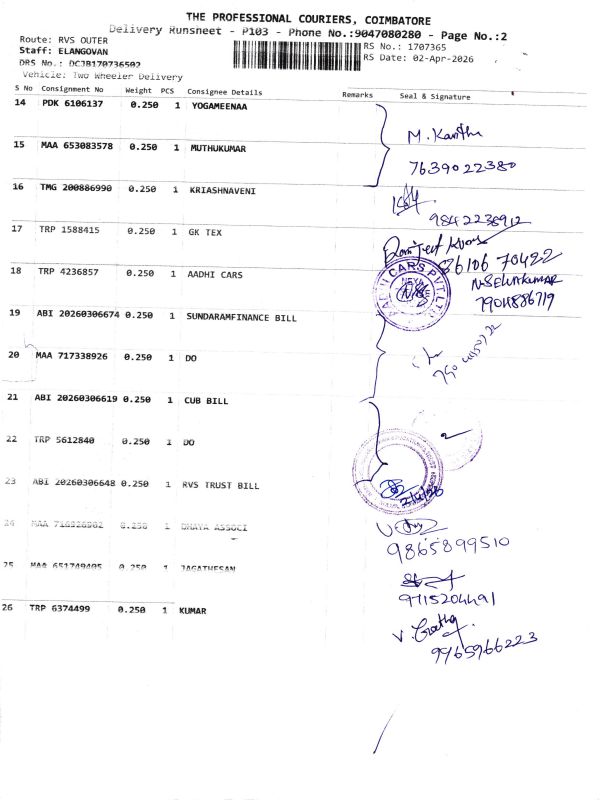 THE PROFESSIONAL COURIERS, COIMBATORE
Delivery Runsheet - P103 - Phone No.:9047080280 - Page No.:2
Route: RVS OUTER
RS No.: 1707365
Staff: ELANGOVAN
RS Date: 02-Apr-2026
DRS No.: DCJB170736502
Vehicle: Two Wheeler Delivery
S No Consignment No Weight PCS Consignee Details Remarks Seal & Signature
14 PDK 6106137 0.250 1 YOGAMEENAA
M. Kantha
15 MAA 653083578 0.250 1 MUTHUKUMAR
7639022380
16 TMG 200886990 0.250 1 KRIASHNAVENI
9842238912
17 TRP 1588415 0.250 1 GK TEX
86106 70422
18 TRP 4236857 0.250 1 AADHI CARS
AADHI CARS PVT LTD
N.SELVAKUMAR
7904886719
19 ABI 20260306674 0.250 1 SUNDARAMFINANCE BILL
20 MAA 717338926 0.250 1 DO
21 ABI 20260306619 0.250 1 CUB BILL
22 TRP 5612840 0.250 1 DO
23 ABI 20260306648 0.250 1 RVS TRUST BILL
24 MAA 0.250 1 DHAYA ASSOCI
9865899510
25 MAA 651749405 0.250 1 JAGATHESAN
9715204491
26 TRP 6374499 0.250 1 KUMAR
9965966223